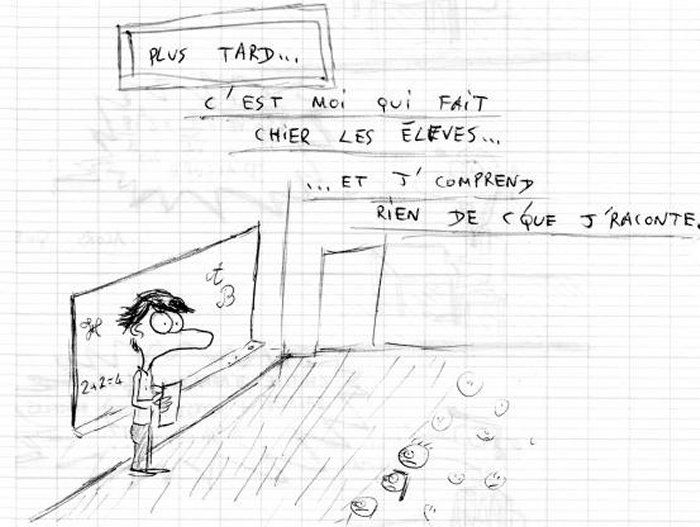 PLUS TARD...
C'EST MOI QUI FAIT
CHIER LES ÉLEVES...
...ET J'COMPREND
RIEN DE C'QUE J'RACONTE.
A
B
2+2=4